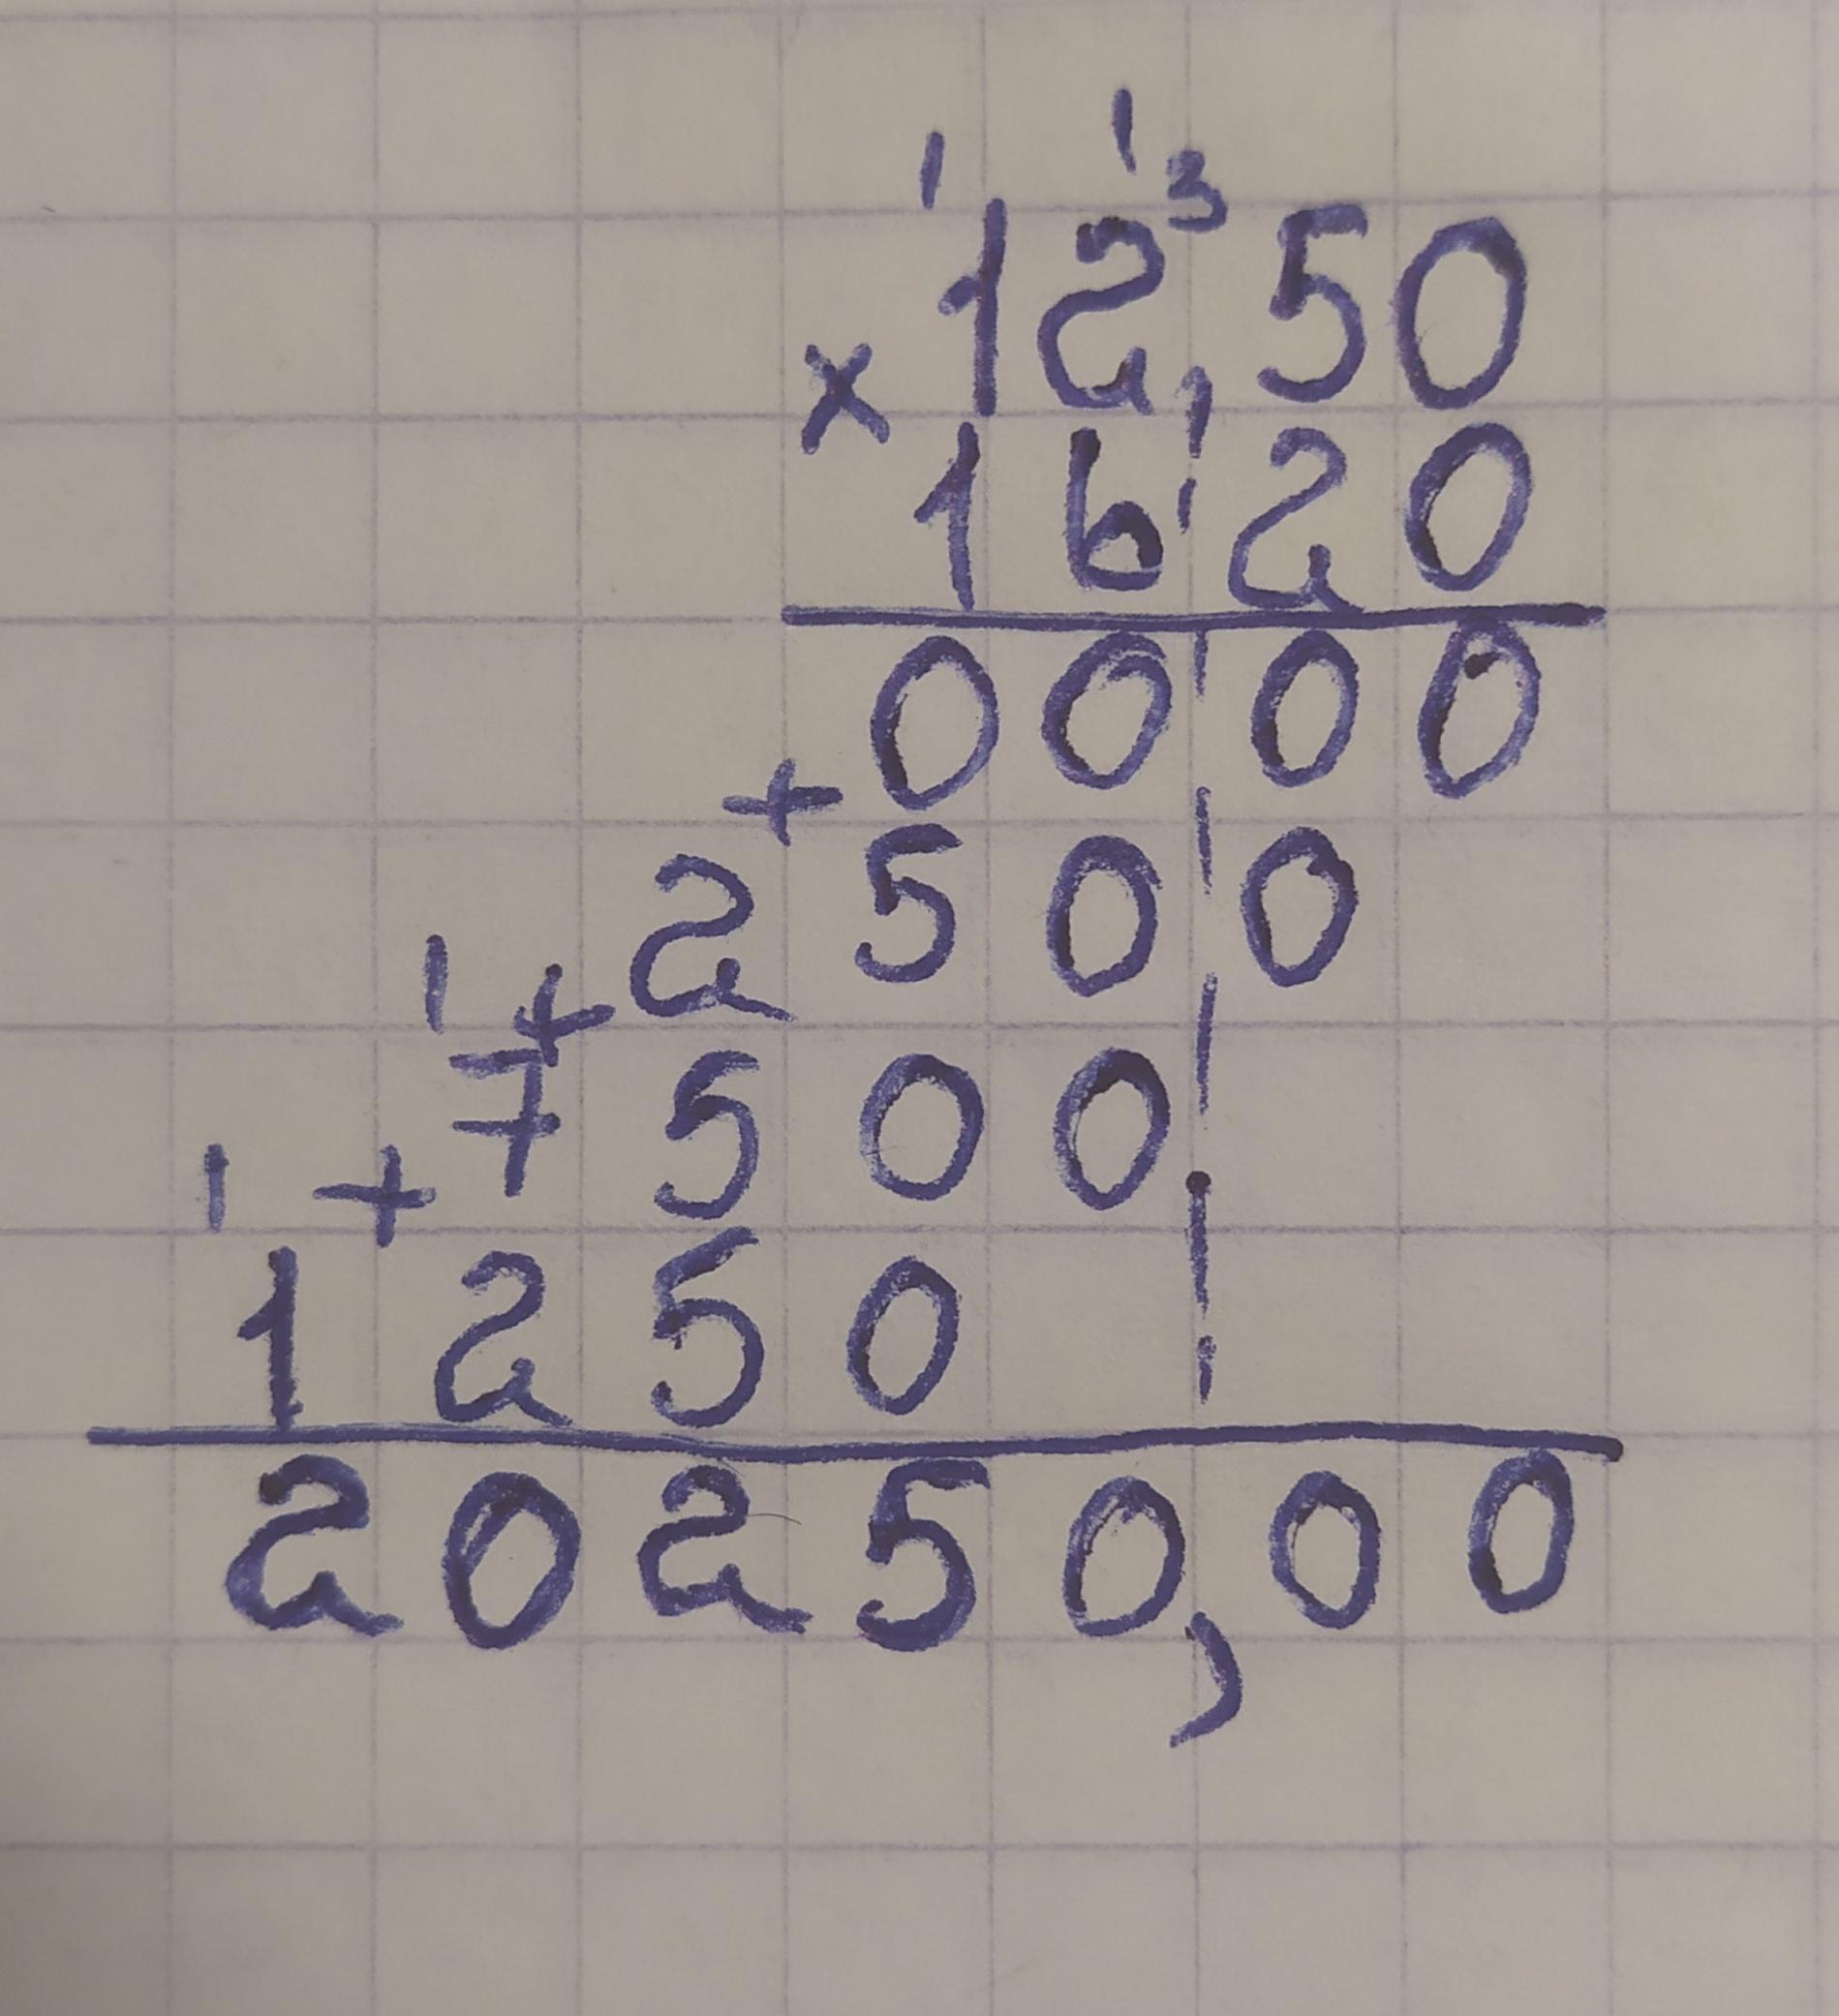 1 1 3
12,50
x 1620
0000
+ 2500
1 + 7500
1 + 1250
20250,00